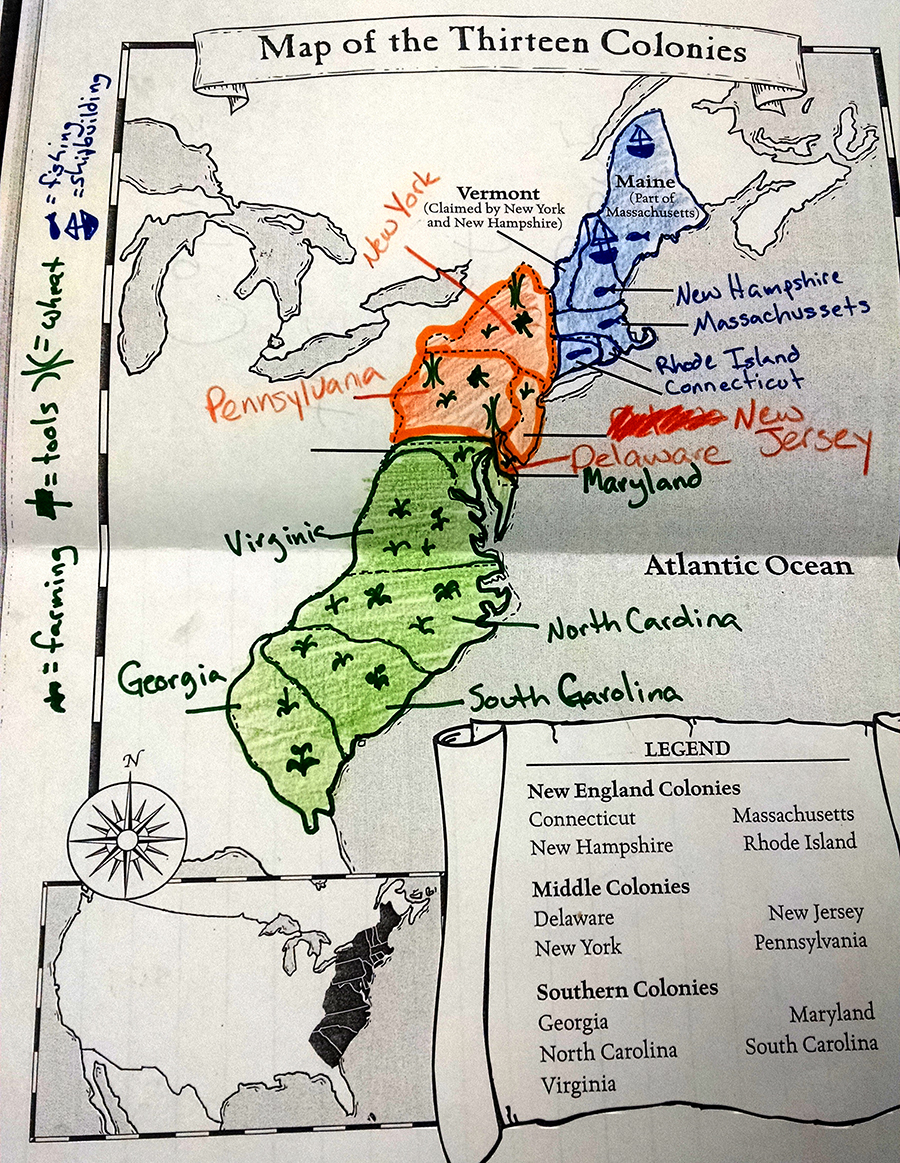 Map of the Thirteen Colonies
= fishing
= shipbuilding
= wheat
= tools
= farming
New York
Vermont
(Claimed by New York
and New Hampshire)
Maine
(Part of
Massachusetts)
New Hampshire
Massachussets
Rhode Island
Connecticut
Pennsylvania
New
Jersey
Delaware
Maryland
Virginia
Atlantic Ocean
North Carolina
Georgia
South Garolina
N
LEGEND
New England Colonies
Connecticut Massachusetts
New Hampshire Rhode Island
Middle Colonies
Delaware New Jersey
New York Pennsylvania
Southern Colonies
Georgia Maryland
North Carolina South Carolina
Virginia